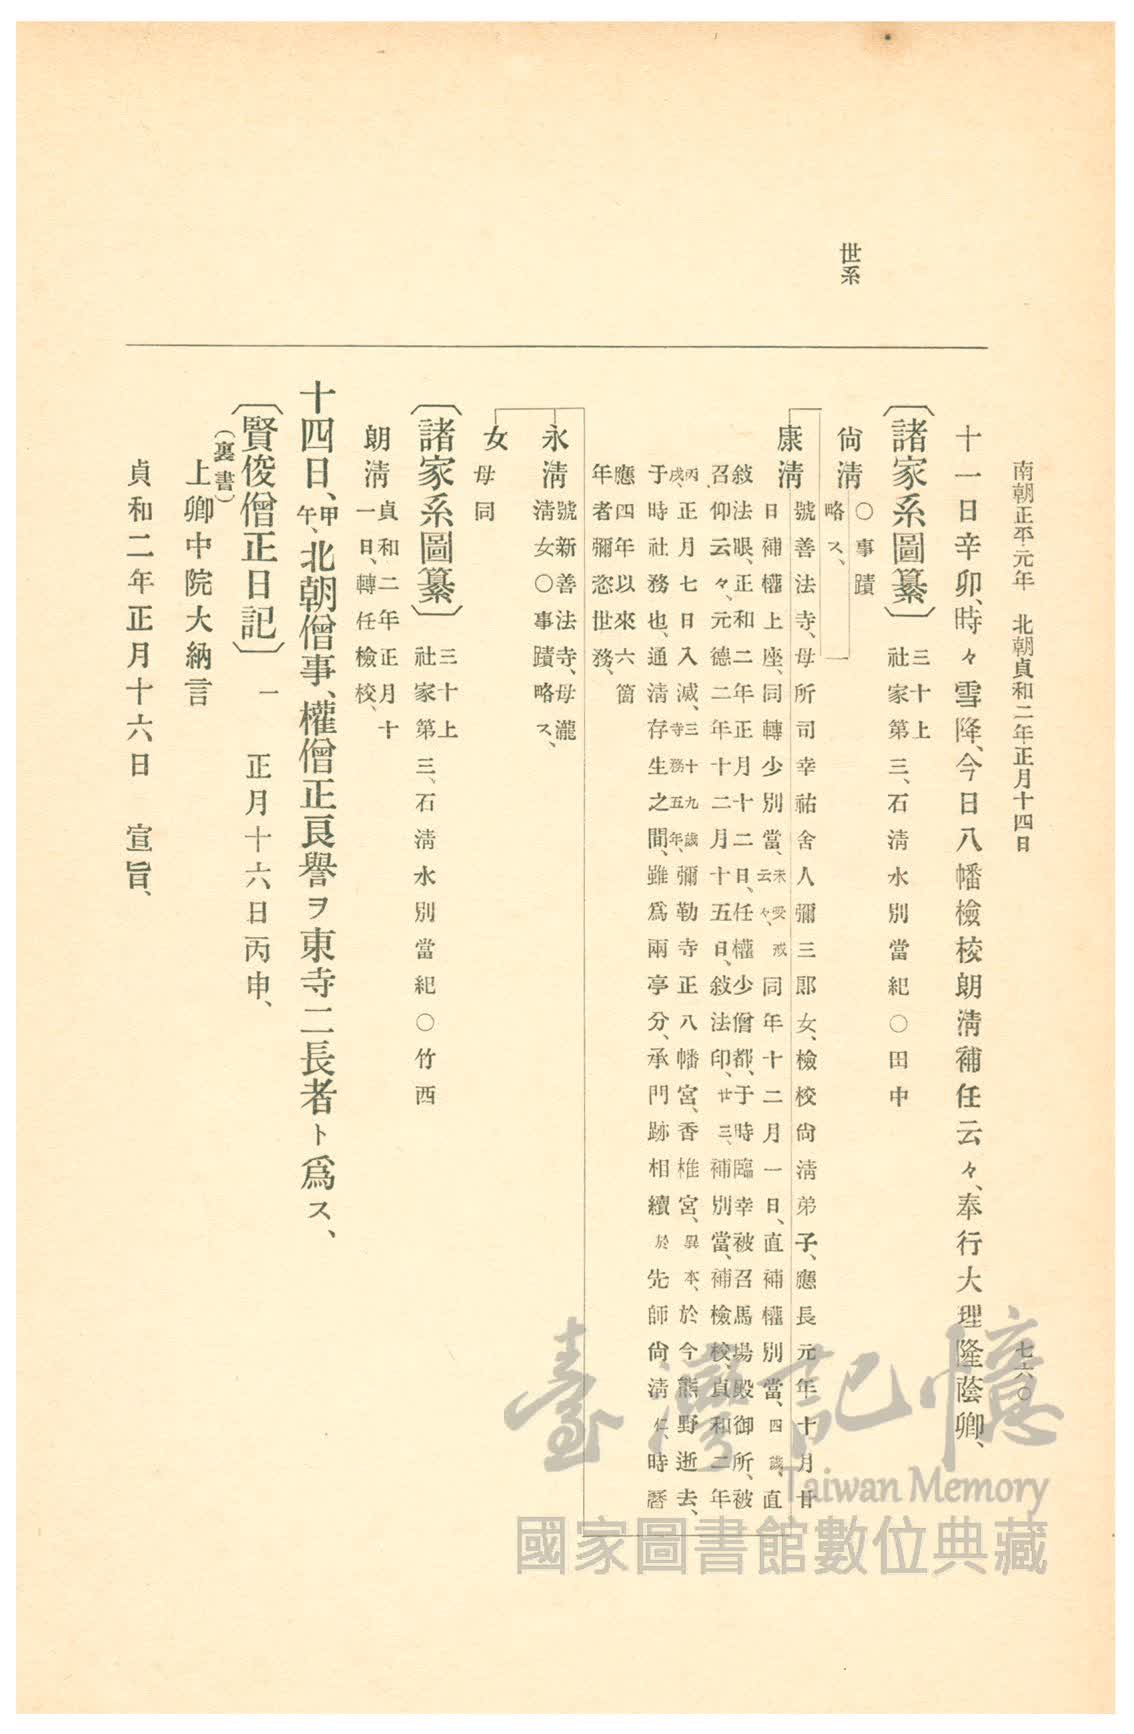 南朝正平元年　北朝貞和二年正月十四日
七六〇
世系
十一日辛卯、時々雪降、今日八幡檢校朗淸補任云々、奉行大理隆蔭卿、
〔諸家系圖纂〕三十上
社家第三、石淸水別當紀〇田中
尙淸〇事蹟
略ス、
康淸號善法寺、母所司幸祐舍人彌三郞女、檢校尙淸弟子、應長元年十月廿
日補權上座、同轉少別當、未受戒云々、同年十二月一日、直補權別當、四歲、直
敍法眼、正和二年正月十二日、任權少僧都、于時臨幸被召馬場殿御所、被
召仰云々、元德二年十二月十五日、敍法印、廿三、補別當、補檢校、貞和二年
丙戌、正月七日入滅、三十九歲寺務五年、彌勒寺正八幡宮、香椎宮、異本、於今熊野逝去、
于時社務也、通淸存生之間、雖爲兩亭分、承門跡相續於先師尙淸仁、時曆
應四年以來六箇
年者彌恣世務、
永淸號新善法寺、母瀧
淸女〇事蹟略ス、
女母同
〔諸家系圖纂〕三十上
社家第三、石淸水別當紀〇竹西
朗淸貞和二年正月十
一日、轉任檢校、
十四日、甲午、北朝僧事、權僧正良譽ヲ東寺二長者ト爲ス、
〔賢俊僧正日記〕一　正月十六日丙申、
（裏書）
上卿中院大納言
貞和二年正月十六日　宣旨、
臺灣記憶
Taiwan Memory
國家圖書館數位典藏